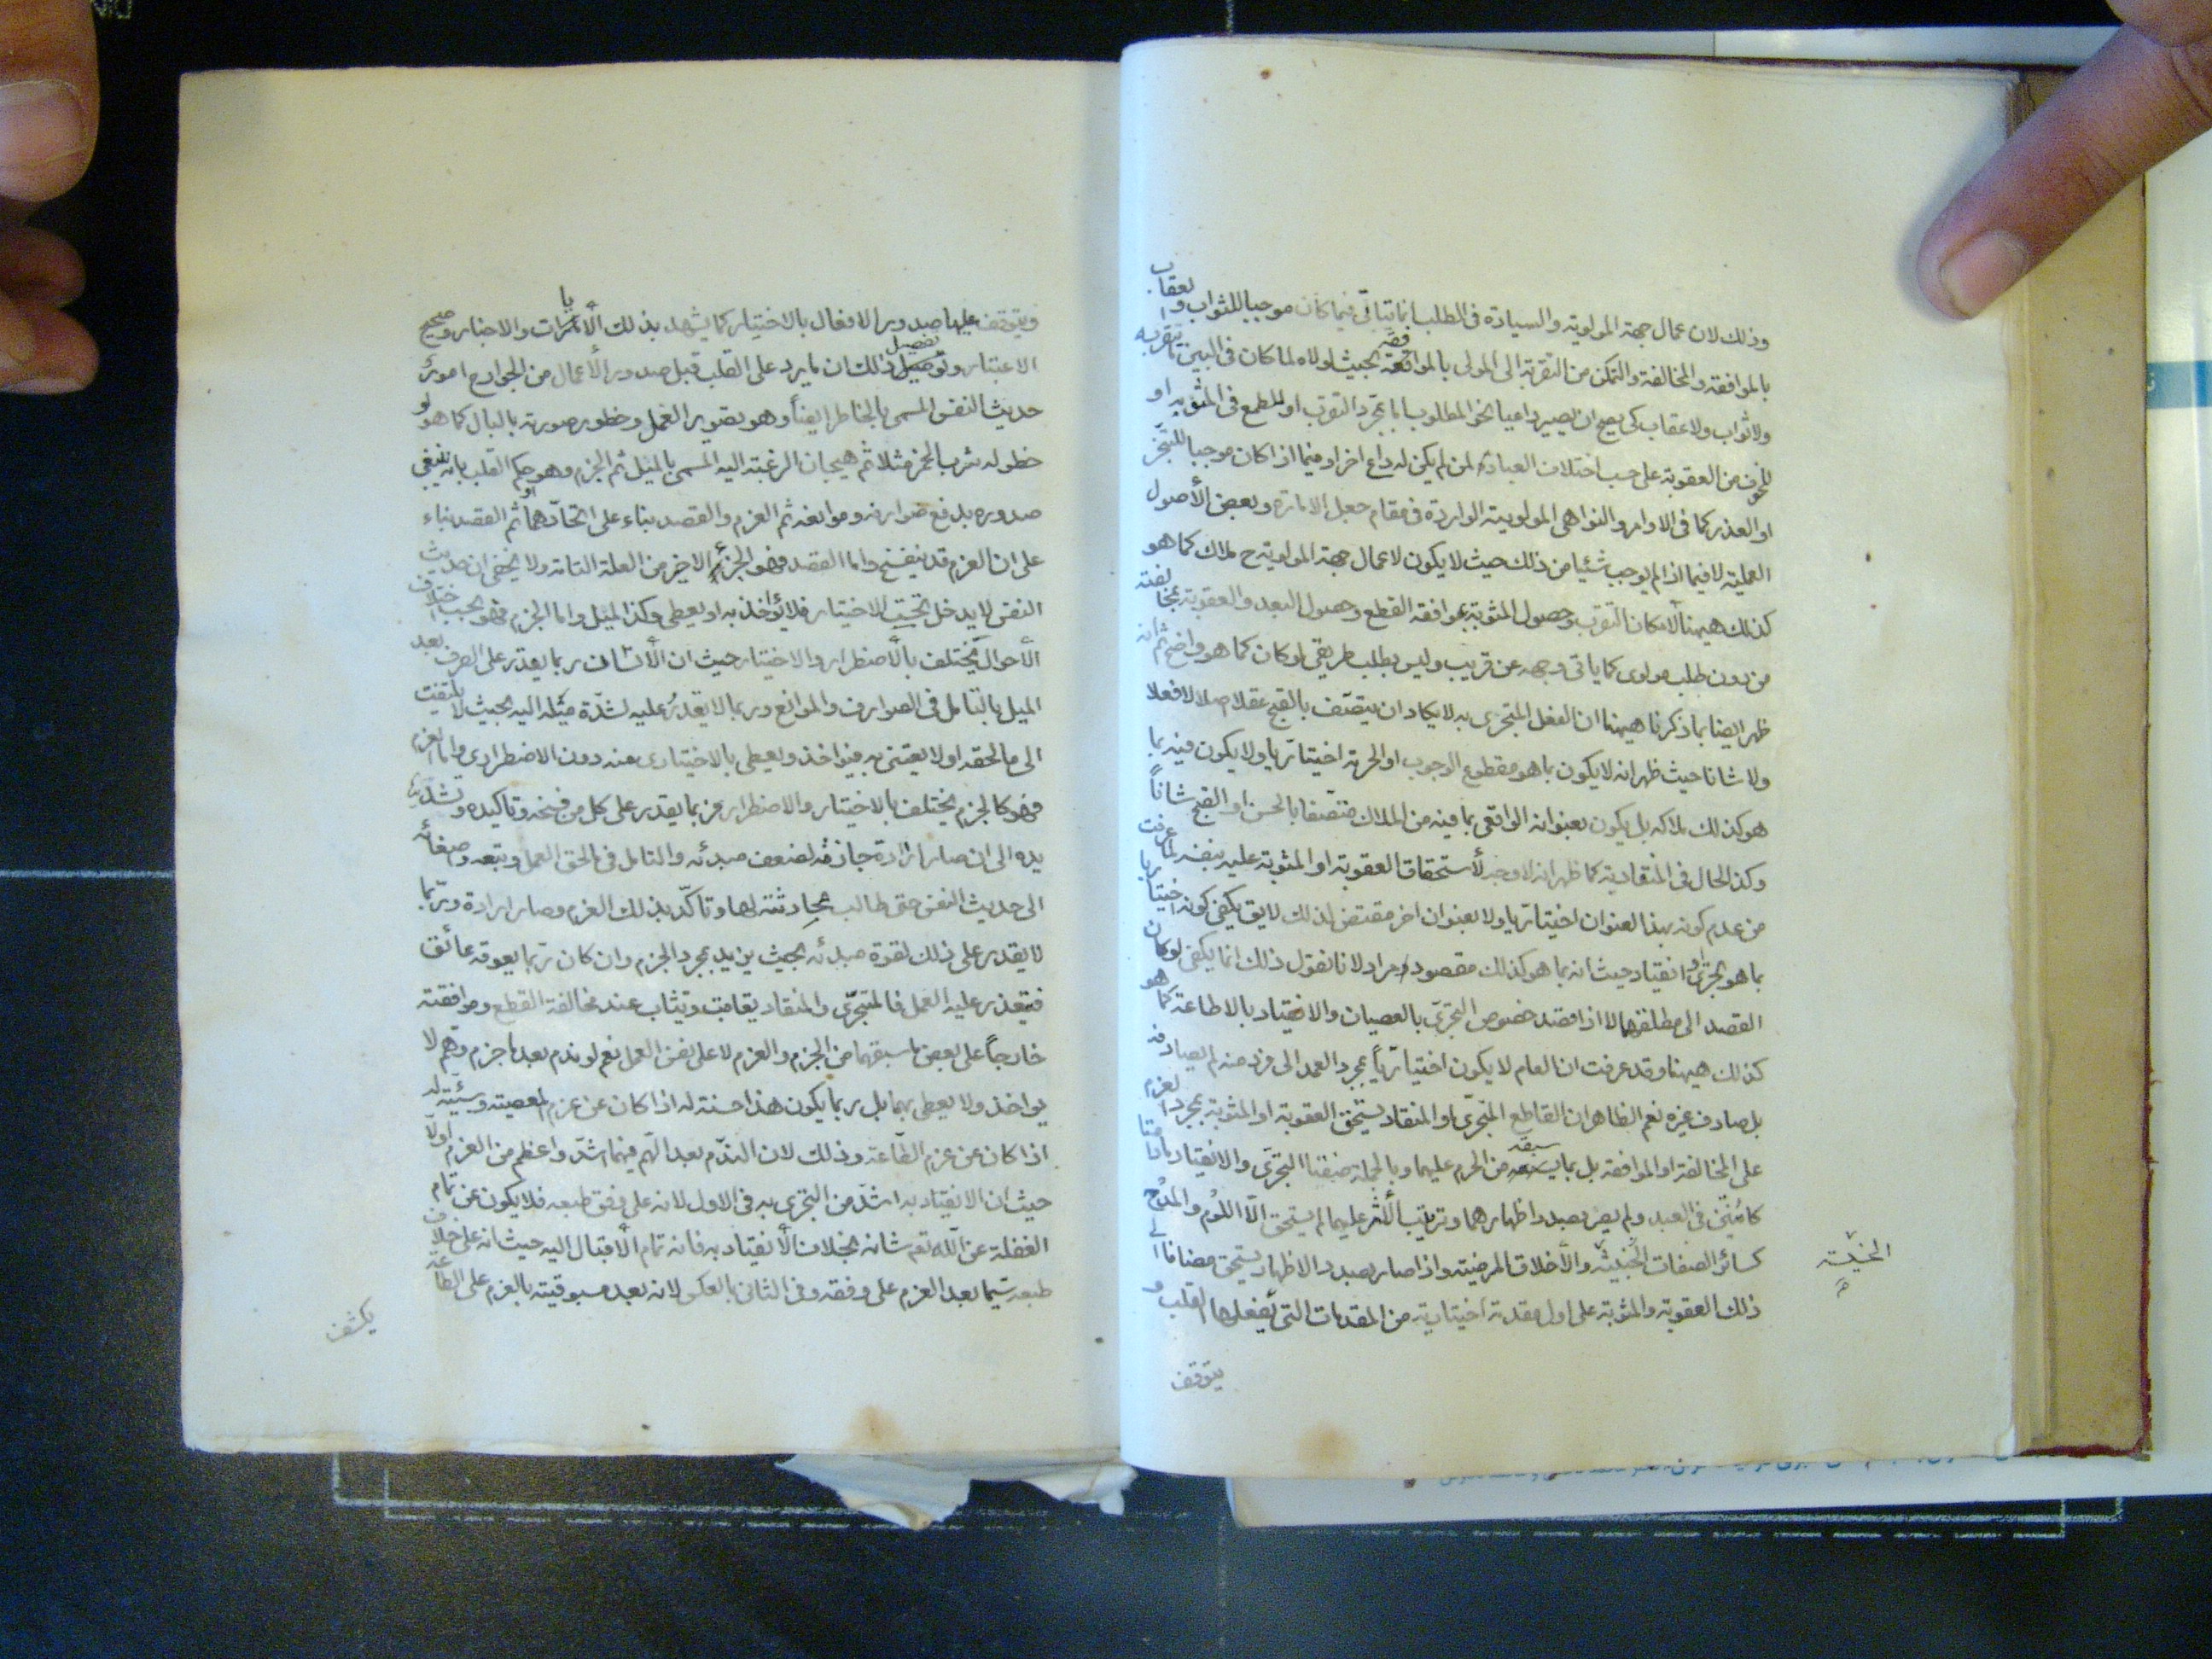 وذلك لان عمال جهة المولوية والسيادة فى الطلب انما يتاتى فيما كان موجبا للثواب والعقاب
بالموافقة والمخالفة والتمكن من التقربة الى المولى بالموافقة بحيث لولاه لما كان فى البين تقربه
ولا ثواب ولا عقاب كى يصح ان يصير داعيا نحو المطلوب اما بمجرد التقرب او للطمع فى المثوبة او
للخوف من العقوبة على حسب اختلاف العباد لمن لم يكن له داع اخر او فيما اذا كان موجبا للتنجز
او العذر كما فى الاوامر والنواهى المولوية الواردة فى مقام جعل الامارة وبعض الأصول
العملية لا فيما اذا لم يوجب شئيا من ذلك حيث لا يكون لاعمال جهة المولوية ح ملاك كما هو
كذلك هيهنا لامكان التقرب وحصول المثوبة بموافقه القطع وحصول البعد والعقوبة بمخالفته
من دون طلب مولوى كما ياتى وجهه عن قريب وليس بطلب طريقى لو كان كما هو واضح ثم انه
ظهر ايضا بما ذكرنا هيهنا ان الفعل المتجرى به لا يكاد ان يتصف بالقبح عقلا اصلا لا فعلا
ولا شانا حيث ظهر انه لا يكون بما هو مقطوع الوجوب او الحرمة اختياريا ولا يكون فيه بما
هو كذلك ملاكه بل يكون بعنوانه الواقعى بما فيه من الملاك متصفا بالحسن او القبح شاناً
وكذا الحال فى المنقاد به كما ظهر انه لا وجه لأستحقاق العقوبة او المثوبة عليه بنفسه لما عرفت
من عدم كونه بهذا العنوان اختياريا ولا بعنوان اخر مقتض لذلك لا يق يكفى كونه اختياريا
بما هو تجرى او انقياد حيث انه بما هو كذلك مقصود ومراد لانا نقول ذلك انما يكفى لو كان
القصد الى مطلقهما لا اذا قصد خصوص التجرى بالعصيان والانقياد بالاطاعة كما هو
كذلك هيهنا وقد عرفت ان العام لا يكون اختيارياً بمجرد العمد الى فرد منه لم يصادفه
بل صادف غيره نعم الظاهر ان القاطع المتجرى او المنقاد يستحق العقوبة او المثوبة بمجرد العزم
على المخالفة او الموافقة بل بما سبقه من الجزم عليهما وبالجملة صفتا التجرى والانقياد ما دامتا
كامنتين فى العبد ولم يصر بصدد اظهارهما وترتيب الأثر عليهما لم يستحق الّا اللوم والمدح
كسائر الصفات الخبيثة والأخلاق المرضية واذا صار بصدد الاظهار يستحق مضافا الى
الخبيثة
ذلك العقوبة والمثوبة على اول مقدمة اختيارية من المقدمات التى يفعلها القلب و
يتوقف
ويتوقف عليها صدور الافعال بالاختيار كما يشهد بذلك الأيات والاخبار وصحيح
الاعتبار وتفصيل ذلك ان ما يرد على القلب قبل صدور الأعمال من الجوارح امور
حديث النفس المسمى بالخاطر ايضاً وهو تصوير العمل وخطور صورته بالبال كما هو لو
خطر له شرب الخمر مثلا ثم هيجان الرغبة اليه المسمى بالميل ثم الجزم وهو حكم القلب بانه ينبغى
صدوره بدفع صوارفه وموانعه ثم العزم والقصد بناء على اتحادهما او ثم القصد بناء
على ان العزم قد ينفسخ واما القصد فهو الجزء الاخير من العلة التامة ولا يخفى ان حديث
النفس لا يدخل تحت الاختيار فلا يؤاخذ به او يعطى وكذا الميل واما الجزم فهو بحسب اختلاف
الأحوال يختلف بالأضطرار والاختيار حيث ان الأنسان ربما يقدر على الصرف بعد
الميل بالتامل فى الصوارف والموانع وربما لا يقدر عليه لشدّة ميله اليه بحيث لا يلتفت
الى ما لحقه او لا يعتنى به فيؤاخذ ويعطى بالاختيارى منه دون الاضطرارى واما العزم
فهو كالجزم يختلف بالاختيار والاضطرار فربما يقدر على كل من فسخه وتاكيده وتشديده
الى ان صار ارادة جازمة لضعف مبدئه والتامل فى لاحق العمل وتبعه وصغائه
الى حديث النفس حتى طالب محادثته لها وتاكد بذلك العزم وصار ارادة وربما
لا يقدر على ذلك لقوة مبدئه بحيث يزيد بمجرد الجزم وان كان ربما يعوقه عائق
فيتعذر عليه العمل فالمتجرى والمنقاد يعاقب ويثاب عند مخالفة القطع وموافقته
خارجاً على بعض ما سبقهما من الجزم والعزم لا على نفس العمل نعم لو ندم بعد ما جزم وهمّ لا
يواخذ ولا يعطى بهما بل ربما يكون هذا حسنة له اذا كان عن عزم المعصية وسيئة له
اذا كان عن عزم الطاعة وذلك لان الندم بعد الهم فيهما اشد واعظم من العزم اولا
حيث ان الانقياد به اشد من التجرى به فى الاول لانه على وفق طبعه فلا يكون عن تمام
الغفلة عن الله تعم شانه بخلاف الأنقياد به فانه تمام الأقبال اليه حيث انه على خلاف
طبعه سيما بعد العزم على وفقه وفى الثانى بالعكس لانه بعد مسبوقيته بالعزم على الطاعة
يكشف